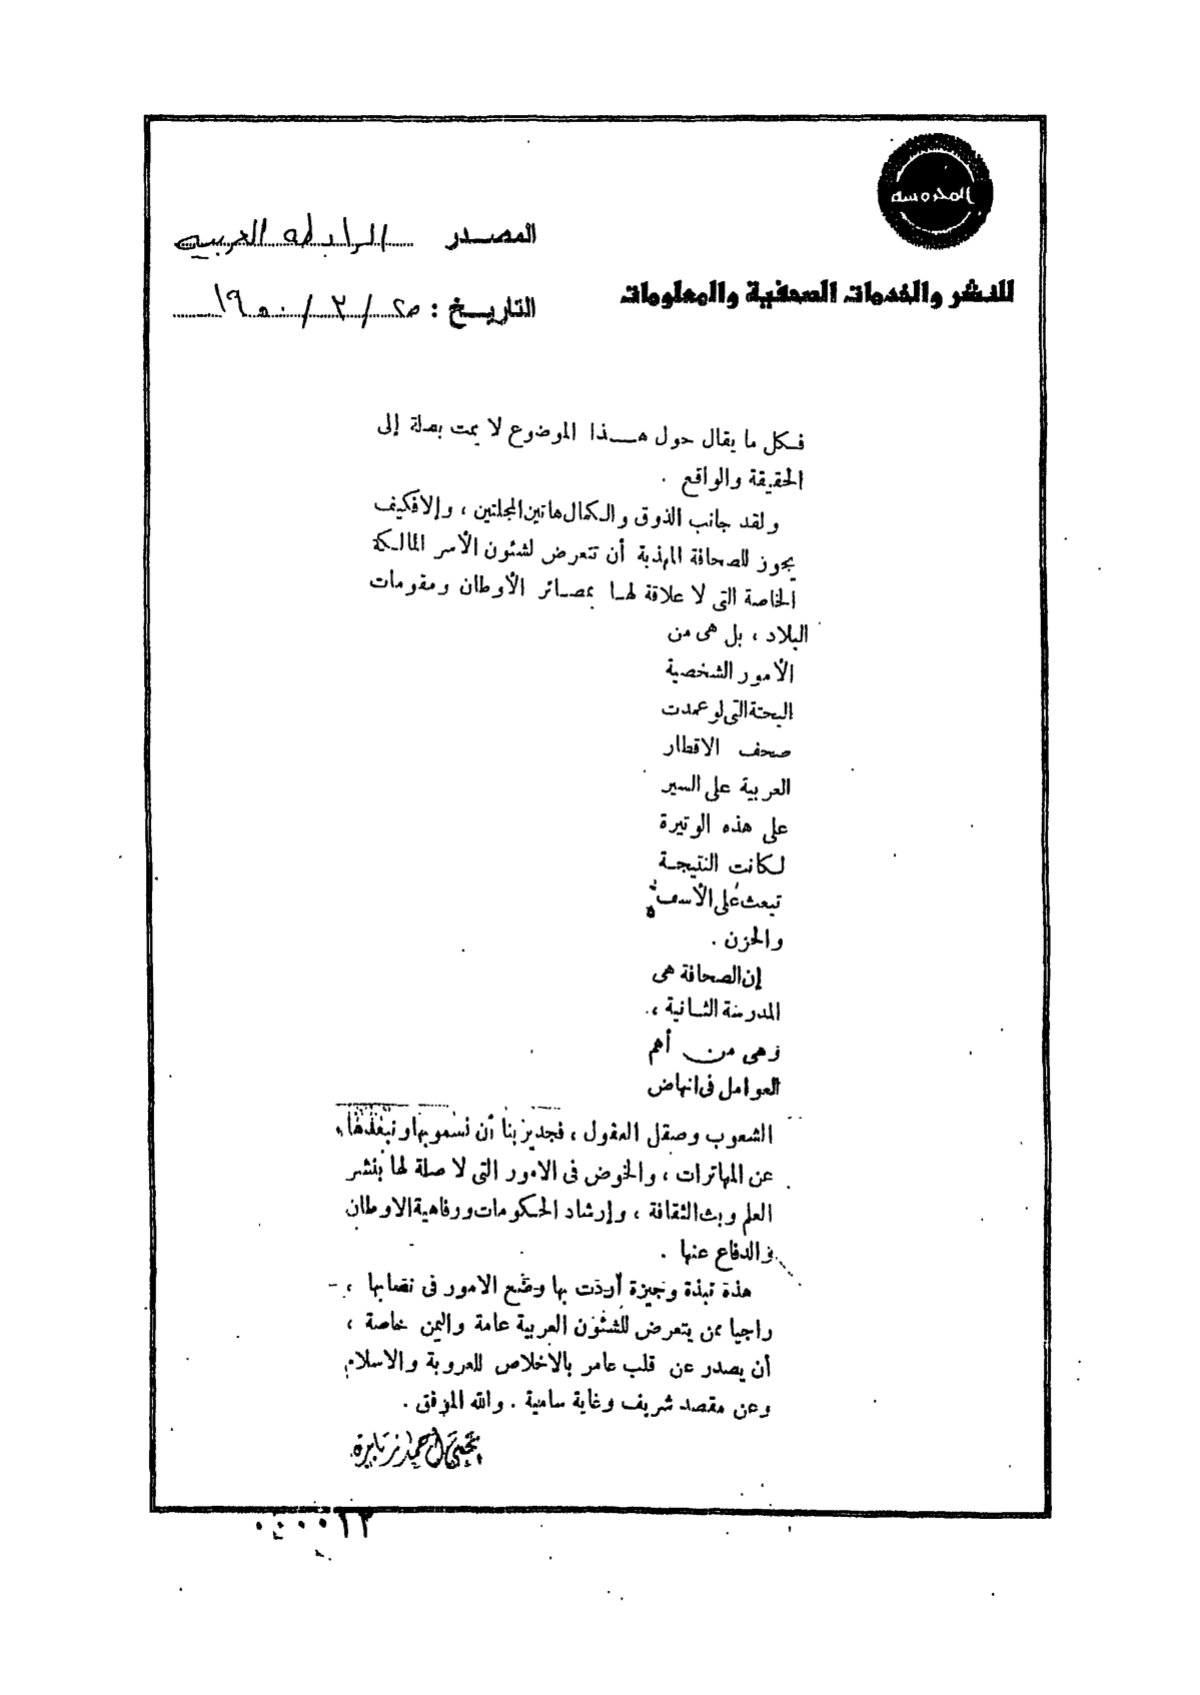 المحروسة
للنشر والخدمات الصحفية والمعلومات
المصدر الرابطه العربيه
التاريخ : ٢٥ / ٢ / ١٩٥٠
فكل ما يقال حول هذا الموضوع لا يمت بصلة إلى
الحقيقة والواقع .
ولقد جانب الذوق والكمال هاتين المجلتين ، وإلا فكيف
يجوز للصحافة المهذبة أن تتعرض لشئون الأسر المالكة
الخاصة التى لا علاقة لها بمصائر الأوطان ومقومات
البلاد ، بل هى من
الأمور الشخصية
البحتة التى لو عمدت
صحف الاقطار
العربية على السير
على هذه الوتيرة
لكانت النتيجة
تبعث على الأسف
والحزن .
إن الصحافة هى
المدرسة الثانية ،
وهى من أهم
العوامل فى انهاض
الشعوب وصقل العقول ، فجدير بنا أن نسمو بها ونبعدها
عن المهاترات ، والخوض فى الامور التى لا صلة لها بنشر
العلم وبث الثقافة ، وإرشاد الحكومات ورفاهية الاوطان
والدفاع عنها .
هذة نبذة وجيزة أردت بها وضع الامور فى نصابها ،
راجيا ممن يتعرض للشئون العربية عامة واليمن خاصة ،
أن يصدر عن قلب عامر بالاخلاص للعروبة والاسلام
وعن مقصد شريف وغاية سامية . والله الموفق .
يحيى أحمد زبارة